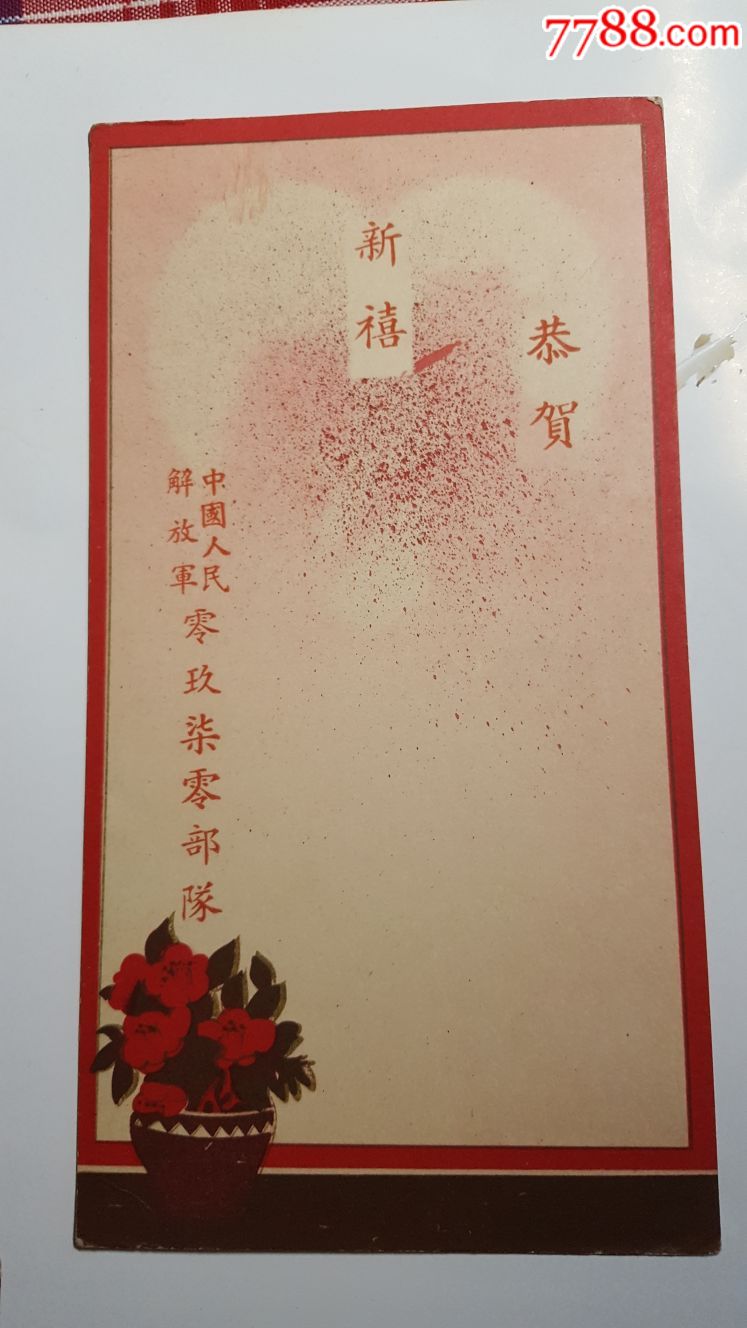 7788.com
恭賀
新禧
中國人民
解放軍
零玖柒零部隊